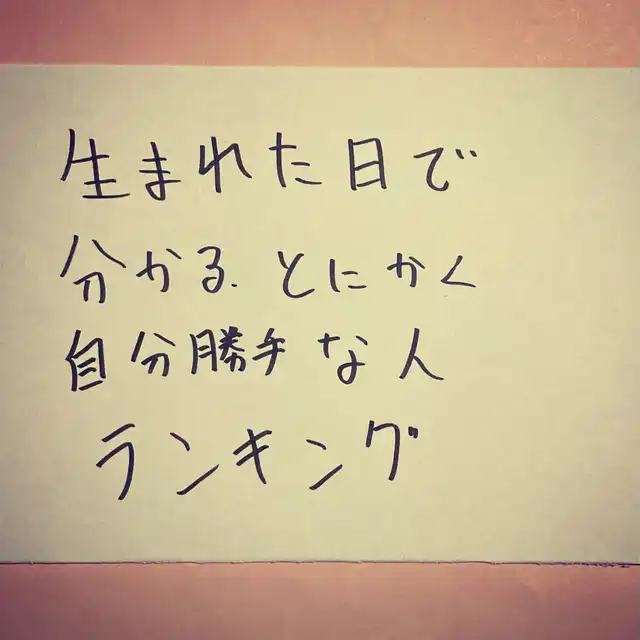 生まれた日で
分かる.とにかく
自分勝手な人
ランキング